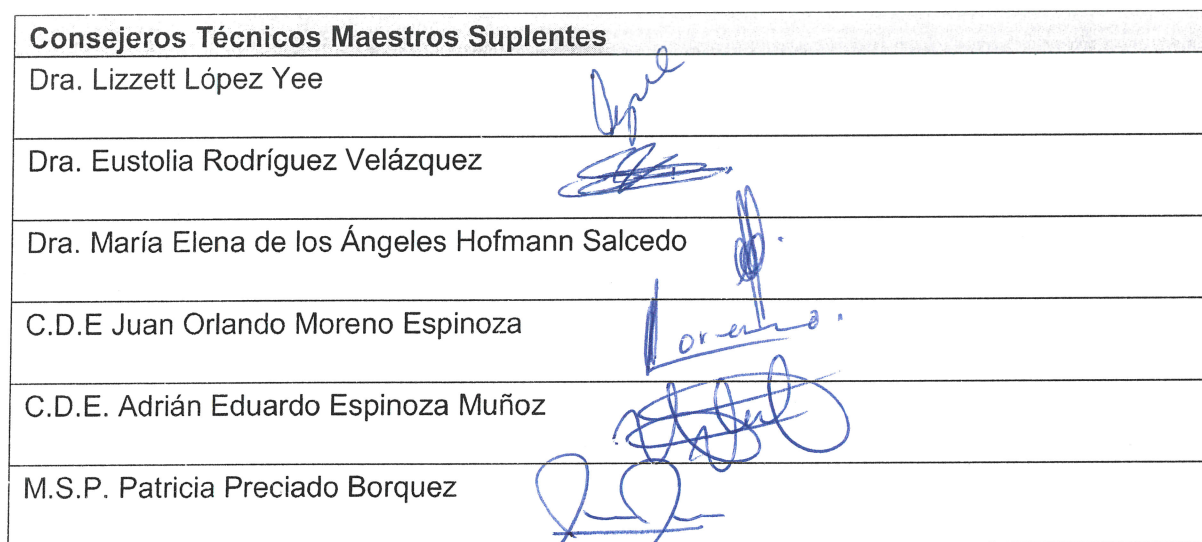 Consejeros Técnicos Maestros Suplentes
Dra. Lizzett López Yee
Dra. Eustolia Rodríguez Velázquez
Dra. María Elena de los Ángeles Hofmann Salcedo
C.D.E Juan Orlando Moreno Espinoza
C.D.E. Adrián Eduardo Espinoza Muñoz
M.S.P. Patricia Preciado Borquez